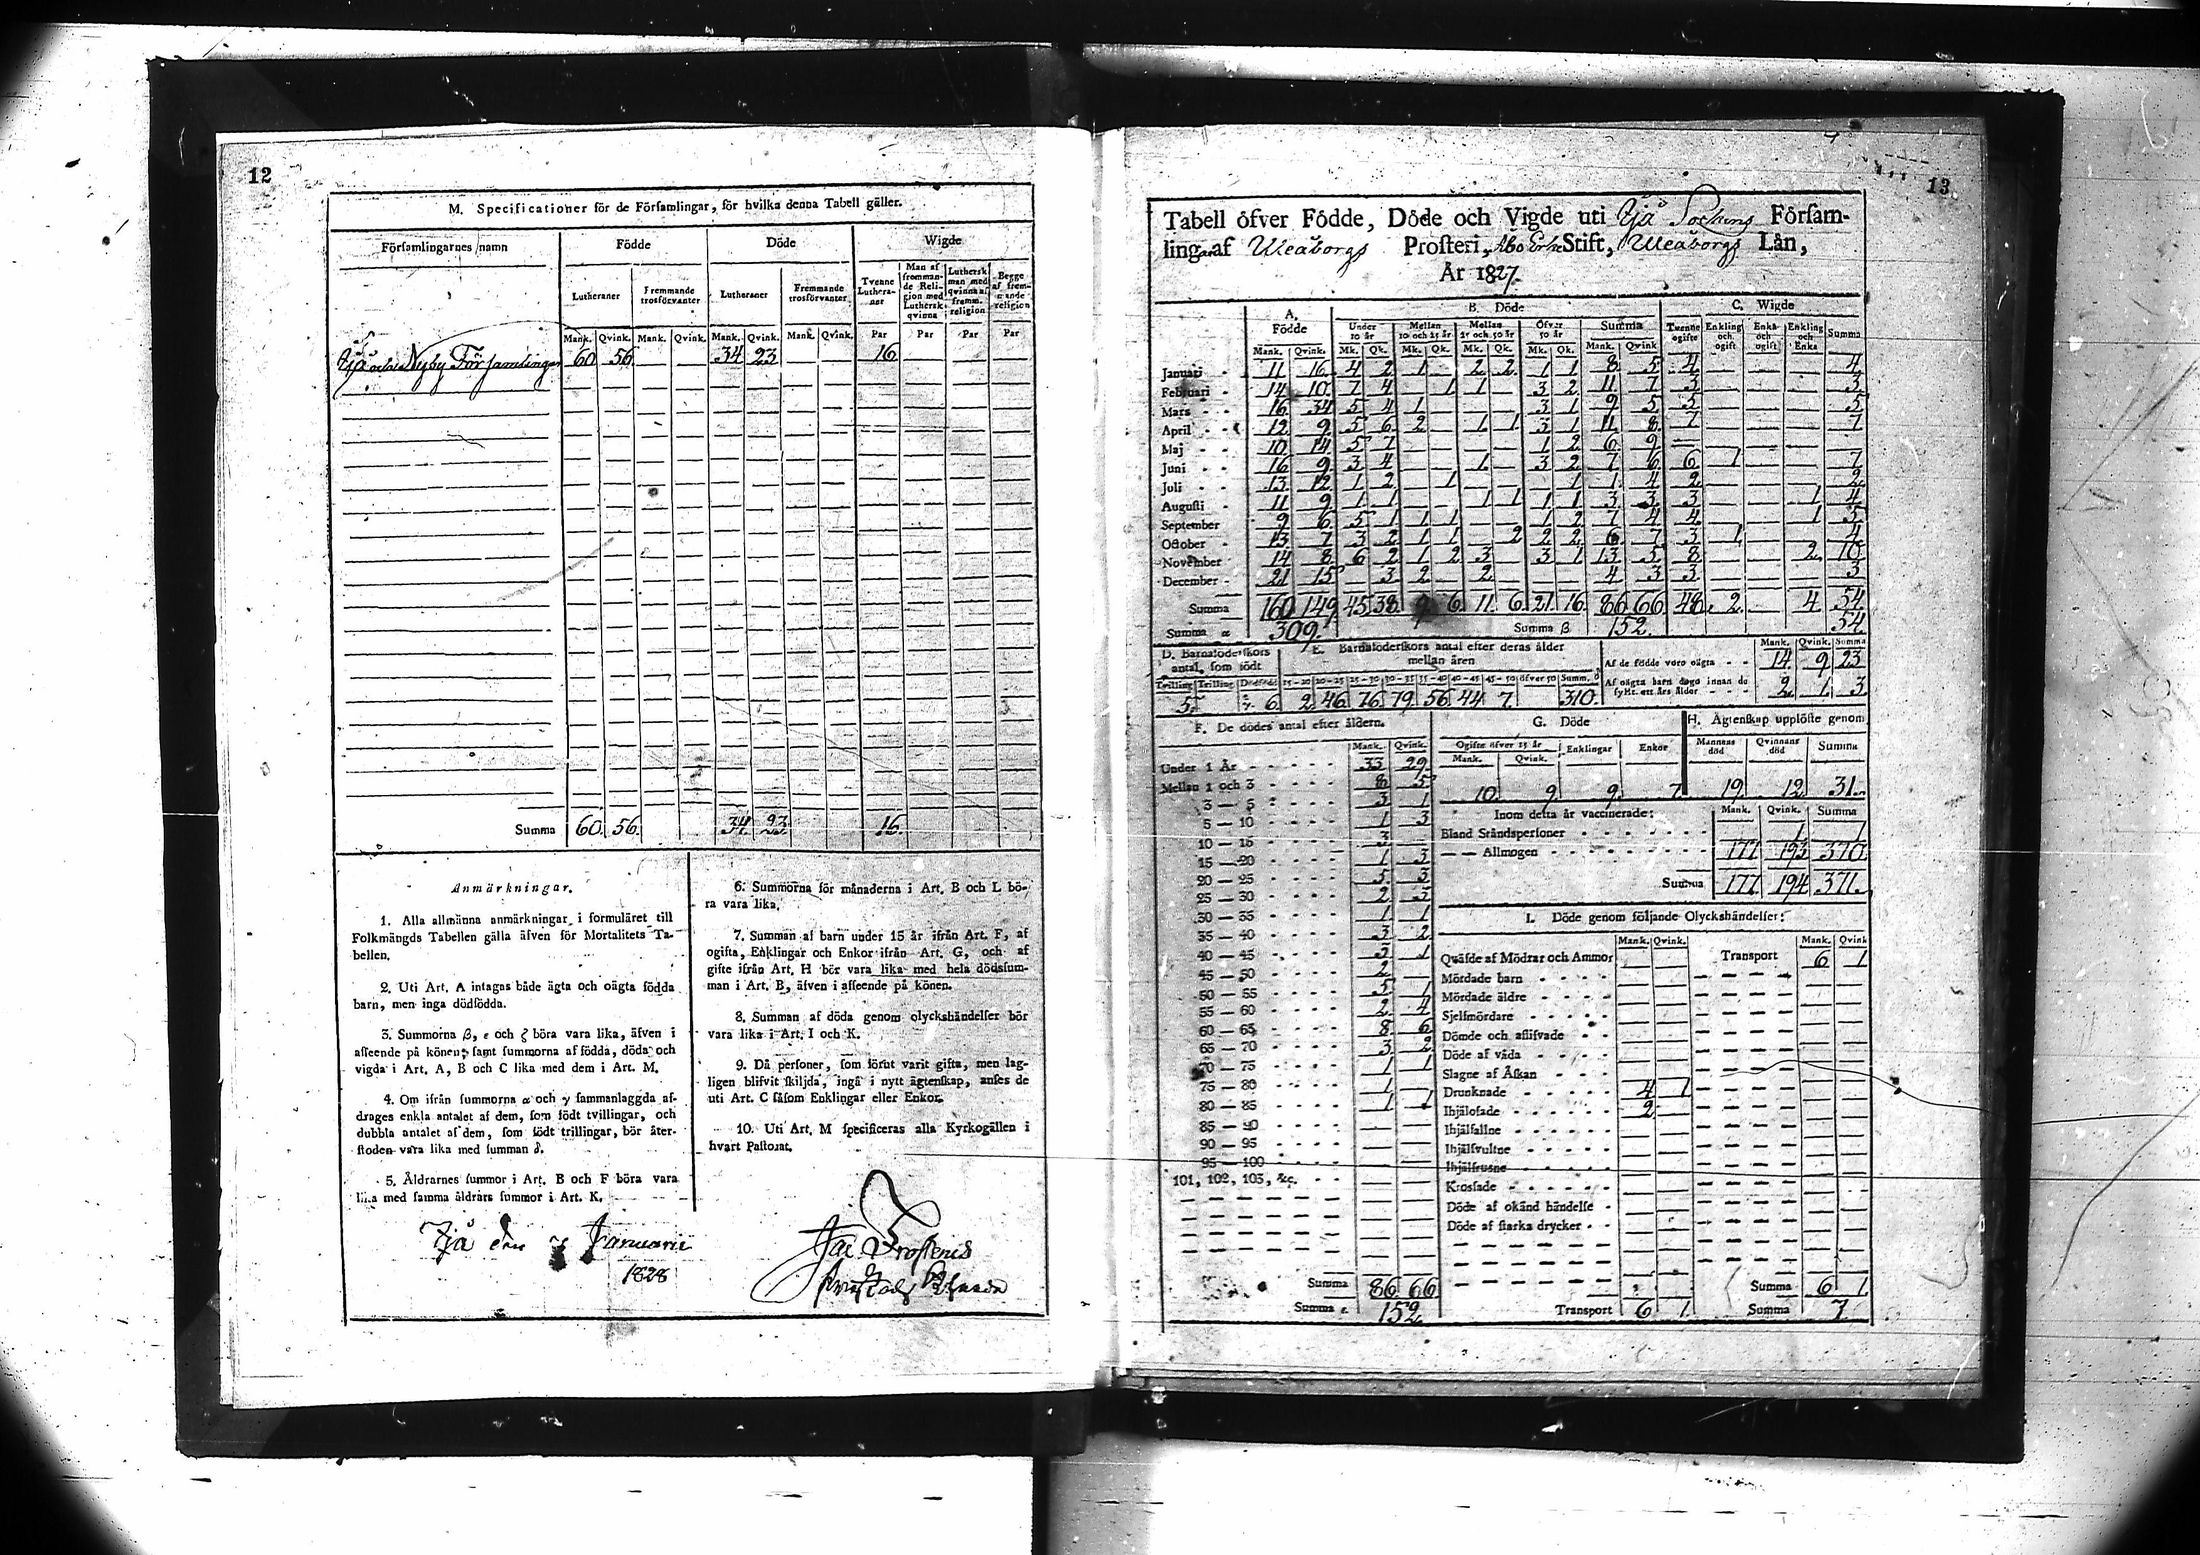 12
M. Specificationer för de Församlingar, för hvilka denna Tabell gäller.
Församlingarnes namn Födde Döde Wigde
Lutheraner Fremmande trosförvanter Lutheraner Fremmande trosförvanter Tvenne Lutheraner Man af frommande Religion med Luthersk qvinna Luthersk man med qvinna af fremm. religion Begge af fremmande religion
Mank. Qvink. Mank. Qvink. Mank. Qvink. Mank. Qvink. Par Par Par Par
Nyby Församlingar 60 56 34 23 16
Summa 60. 56. 34. 23. 16.
Anmärkningar.
1. Alla allmänna anmärkningar i formuläret till
Folkmängds Tabellen gälla äfven för Mortalitets Ta-
bellen.
2. Uti Art. A intagas både ägta och oägta födda
barn, men inga dödfödda.
3. Summorna β, ε och ζ böra vara lika, äfven i
afseende på könen; samt summorna af födda, döda och
vigda i Art. A, B och C lika med dem i Art. M.
4. Om ifrån summorna α och γ sammanlaggda af-
drages enkla antalet af dem, som födt tvillingar, och
dubbla antalet af dem, som födt trillingar, bör åter-
stoden vara lika med summan δ.
5. Åldrarnes summor i Art. B och F böra vara
lika med samma åldrars summor i Art. K.
6. Summorna för månaderna i Art. B och L bö-
ra vara lika.
7. Summan af barn under 15 år ifrån Art. F, af
ogifta, Enklingar och Enkor ifrån Art. G, och af
gifte ifrån Art. H bör vara lika med hela dödssum-
man i Art. B, äfven i afseende på könen.
8. Summan af döda genom olyckshändelser bör
vara lika i Art. I och K.
9. Då personer, som förut varit gifta, men lag-
ligen blifvit skiljda, ingå i nytt ägtenskap, anses de
uti Art. C såsom Enklingar eller Enkor.
10. Uti Art. M specificeras alla Kyrkogällen i
hvart Pastorat.
Ijå den Januarii
1828
Frosterus
13.
Tabell öfver Födde, Döde och Vigde uti Ijå Sockens Försam-
lingar af Uleåborgs Prosteri, Åbo Erke Stift, Uleåborgs Län,
År 1827.
A. Födde B. Döde C. Wigde
Under 10 år Mellan 10 och 25 år Mellan 25 och 50 år Öfver 50 år Summa Tvenne ogifte Enkling och ogift Enka och ogift Enkling och Enka Summa
Mank. Qvink. Mk. Qk. Mk. Qk. Mk. Qk. Mk. Qk. Mank. Qvink
Januari 11 16 4 2 1 2 2 1 1 8 5 4 4
Februari 14 10 7 4 1 1 3 2 11 7 3 3
Mars 16 34 5 4 1 3 1 9 5 5 5
April 12 9 5 6 2 1 1 3 1 11 8 7 7
Maj 10 14 5 7 1 2 6 9
Juni 16 9 3 4 1 3 2 7 6 6 1 7
Juli 13 12 1 2 1 1 1 4 2 2
Augusti 11 9 1 1 1 1 1 1 3 3 3 1 4
September 9 6 5 1 1 1 1 2 7 4 4 1 5
October 13 7 3 2 1 1 2 2 2 6 7 3 1 4
November 14 8 6 2 1 2 3 3 1 13 5 8 2 10
December 21 15 3 2 2 4 3 3 3
Summa 160 149 45 38 9 6 11 6 21 16 86 66 48 2 4 54
Summa α 309. Summa β 152. 54.
D. Barnaföderskors antal, som födt
E. Barnaföderskors antal efter deras ålder mellan åren
Tvilling Trilling Dödfödd 15–20 20–25 25–30 30–35 35–40 40–45 45–50 öfver 50 Summ. δ
5. γ 6. 2 46 76 79 56 44 7 310.
Mank. Qvink. Summa
Af de födde voro oägta 14 9 23
Af oägta barn dogo innan de fyllt ett års ålder 2 1 3
F. De dödes antal efter åldern.
Mank. Qvink.
Under 1 År 33 29
Mellan 1 och 3 8 5
3 — 5 3 1
5 — 10 1 3
10 — 15 3
15 — 20 1 3
20 — 25 5 3
25 — 30 2 3
30 — 35 1 1
35 — 40 3 2
40 — 45 3 1
45 — 50 2
50 — 55 5 1
55 — 60 2 4
60 — 65 8 6
65 — 70 3 2
70 — 75 1 1
75 — 80 1
80 — 85 1 1
85 — 90
90 — 95
95 — 100
101, 102, 103, &c.
Summa 86 66
Summa ε. 152
G. Döde
Ogifte öfver 15 år Enklingar Enkor
Mank. Qvink.
10. 9. 9. 7.
H. Ägtenskap upplöste genom
Mannens död Qvinnans död Summa
19 12 31.
Inom detta år vaccinerade: Mank. Qvink. Summa
Bland Ståndspersoner 1 1
— — Allmogen 177 193 370
Summa 177 194 371.
I. Döde genom följande Olyckshändelser:
Mank. Qvink. Mank. Qvink
Qväfde af Mödrar och Ammor Transport 6 1
Mördade barn
Mördade äldre
Sjelfmördare
Dömde och aflifvade
Döde af våda
Slagne af Åskan
Drunknade 4 1
Ihjälofade 2
Ihjälfallne
Ihjälsvultne
Ihjälfrusne
Krossade
Döde af okänd händelse
Döde af starka drycker
Summa 6 1
Transport 6 1 Summa 7.